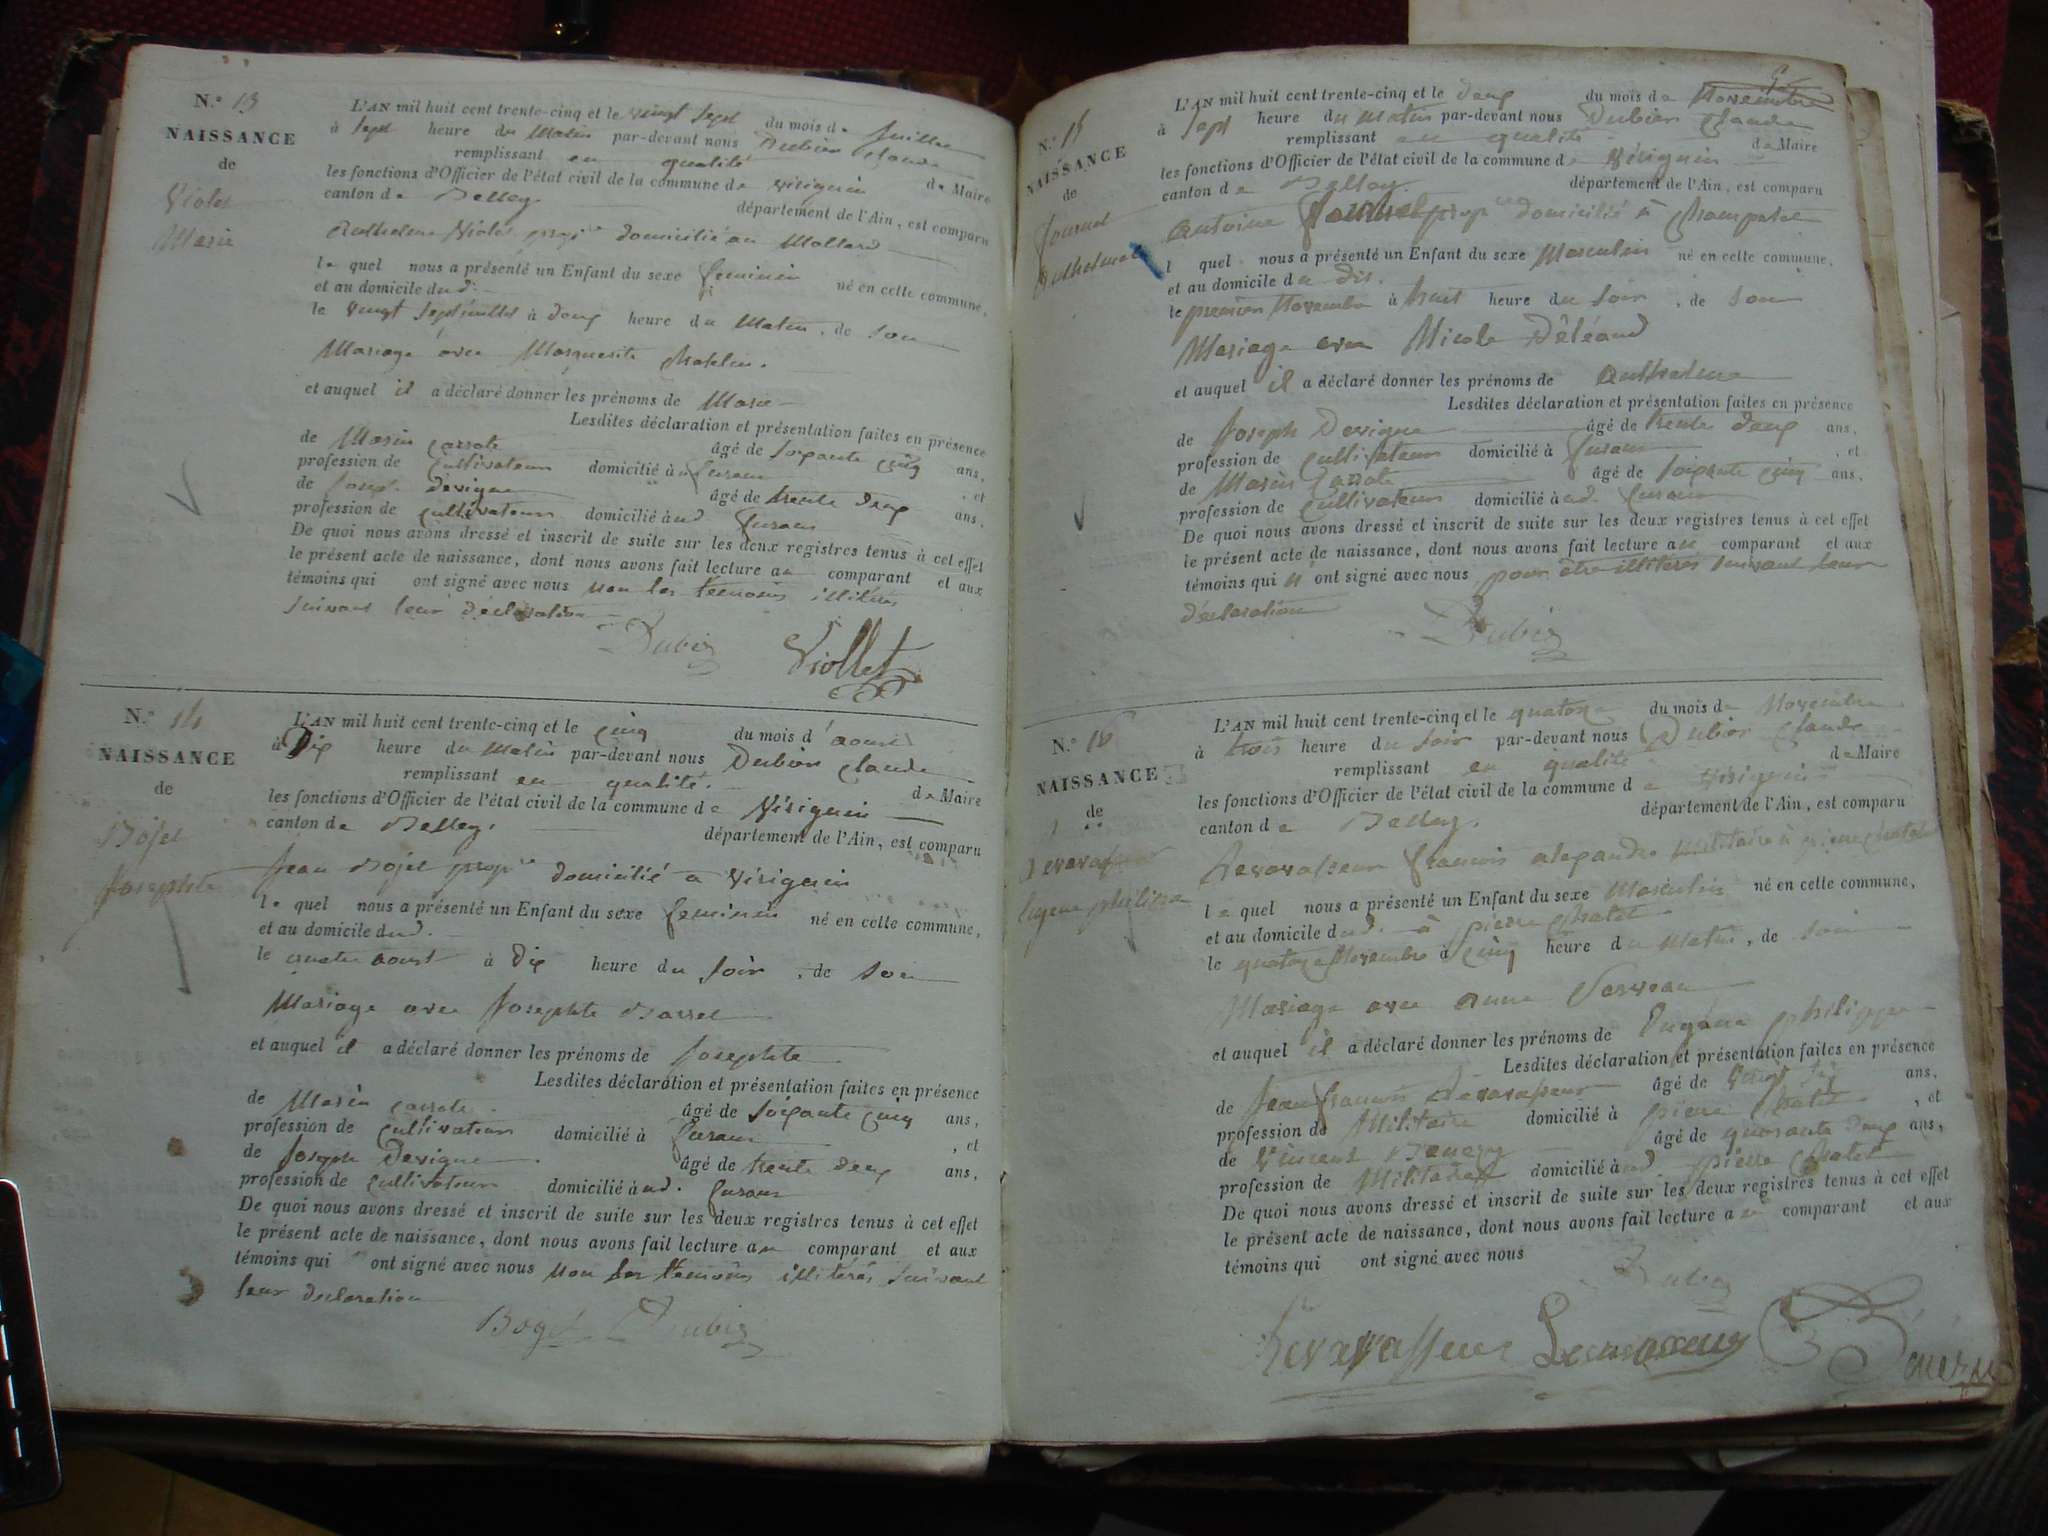 N.° 13
NAISSANCE
de
Violet
Marie
L'AN mil huit cent trente-cinq et le vingt sept du mois de Juillet
à sept heure du Matin par-devant nous Dubien Claude
remplissant en qualité de Maire
les fonctions d'Officier de l'état civil de la commune de Virignin
canton de Belley. département de l'Ain, est comparu
Anthelme Violet prop.re domicilié au Mollard
le quel nous a présenté un Enfant du sexe feminin né en cette commune,
et au domicile dud.
le vingt sept juillet à deux heure du Matin, de son
Mariage avec Marguerite
et auquel il a déclaré donner les prénoms de Marie
Lesdites déclaration et présentation faites en présence
de Marin Carrote âgé de soixante cinq ans,
profession de Cultivateur domicilié à Lurans, et
de Joseph Devigne âgé de trente deux ans,
profession de Cultivateur domicilié à ud. Lurans
De quoi nous avons dressé et inscrit de suite sur les deux registres tenus à cet effet
le présent acte de naissance, dont nous avons fait lecture au comparant et aux
témoins qui ont signé avec nous non les temoins illitérés
suivant leur déclaration
Dubien Viollet
N.° 14
NAISSANCE
de
Bojet
Josephte
L'AN mil huit cent trente-cinq et le cinq du mois d'aoust
à Dix heure du Matin par-devant nous Dubien Claude
remplissant en qualité. de Maire
les fonctions d'Officier de l'état civil de la commune de Virignin
canton de Belley. département de l'Ain, est comparu
Jean Bojet prop.re domicilié a Virignin
le quel nous a présenté un Enfant du sexe feminin né en cette commune,
et au domicile dud.
le quatre aoust à Dix heure du soir, de son
Mariage avec Josephte Barret
et auquel il a déclaré donner les prénoms de Josephte
Lesdites déclaration et présentation faites en présence
de Marin Carrote âgé de soixante cinq ans,
profession de Cultivateur domicilié à Lurans, et
de Joseph Devigne âgé de trente deux ans,
profession de Cultivateur domicilié à ud. Lurans
De quoi nous avons dressé et inscrit de suite sur les deux registres tenus à cet effet
le présent acte de naissance, dont nous avons fait lecture au comparant et aux
témoins qui ont signé avec nous non les temoins illitérés suivant
leur declaration
Boget Dubien
N.° 15
NAISSANCE
de
Fournel
Anthelme
L'AN mil huit cent trente-cinq et le deux du mois de Novembre
à sept heure du matin par-devant nous Dubien Claude
remplissant en qualité de Maire
les fonctions d'Officier de l'état civil de la commune de Virignin
canton de Belley. département de l'Ain, est comparu
Antoine Fournel prop.re domicilié à
l quel nous a présenté un Enfant du sexe Masculin né en cette commune,
et au domicile du dit.
le premier Novembre à huit heure du soir, de son
Mariage avec Nicole Déléand
et auquel il a déclaré donner les prénoms de Anthelme
Lesdites déclaration et présentation faites en présence
de Joseph Devigne âgé de trente deux ans,
profession de Cultivateur domicilié à Lurans, et
de Marin Carrote âgé de soixante cinq ans,
profession de Cultivateur domicilié à ud. Lurans
De quoi nous avons dressé et inscrit de suite sur les deux registres tenus à cet effet
le présent acte de naissance, dont nous avons fait lecture au comparant et aux
témoins qui n'ont signé avec nous pour être illitérés suivant leur
déclaration
Dubien
N.° 16
NAISSANCE
de
Levavasseur
Eugene philippe
L'AN mil huit cent trente-cinq et le quatorze du mois de Novembre
à trois heure du soir par-devant nous Dubien Claude
remplissant en qualité de Maire
les fonctions d'Officier de l'état civil de la commune de Virignin
canton de Belley. département de l'Ain, est comparu
Levavasseur francois alexandre Militaire à pierre Chatel
le quel nous a présenté un Enfant du sexe Masculin né en cette commune,
et au domicile dud. à pierre Chatel
le quatorze Novembre à cinq heure du matin, de son
Mariage avec anne
et auquel il a déclaré donner les prénoms de Eugène philippe
Lesdites déclaration et présentation faites en présence
de Jean francois Levavasseur âgé de vingt six ans,
profession de Militaire domicilié à pierre Chatel, et
de Vincent âgé de quarante deux ans,
profession de Militaire domicilié à ud. pierre Chatel
De quoi nous avons dressé et inscrit de suite sur les deux registres tenus à cet effet
le présent acte de naissance, dont nous avons fait lecture au comparant et aux
témoins qui ont signé avec nous
Dubien
Levavasseur